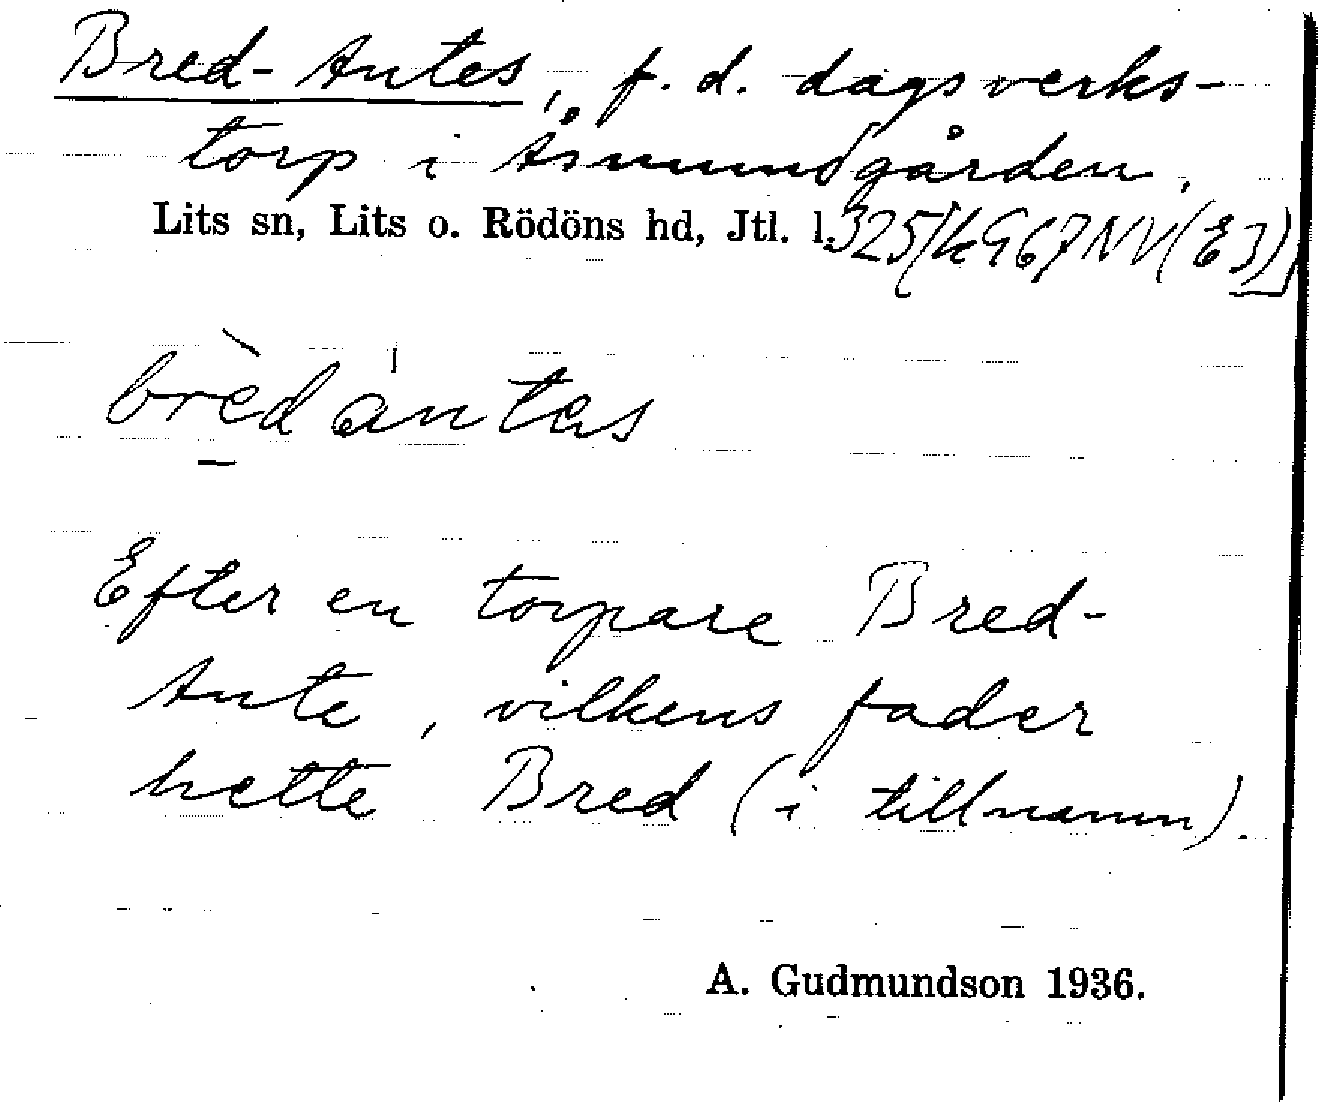 Bred-Antes, f. d. dagsverks-
torp i Åsmundgården.
Lits sn, Lits o. Rödöns hd, Jtl. l.
brèdántes
Efter en torpare Bred-
Ante, vilkens fader
hette Bred (i tillnamn).
A. Gudmundson 1936.